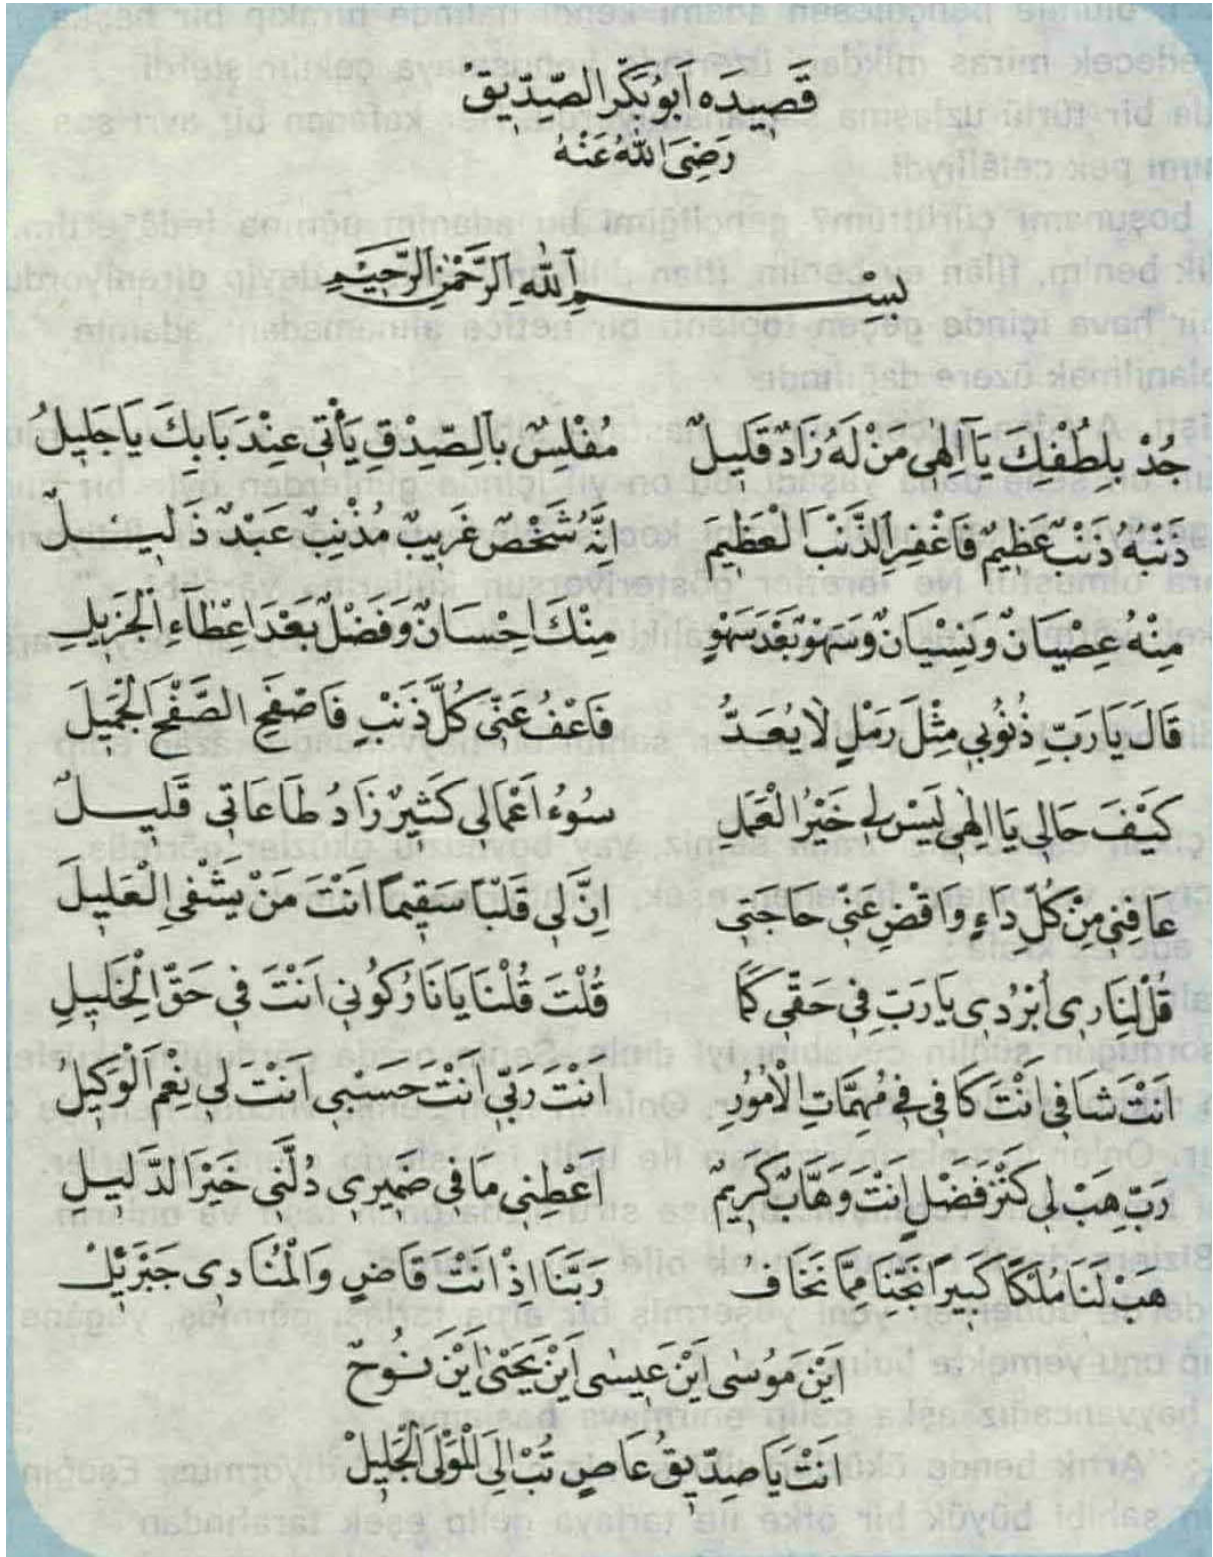 قَصِيدَه اَبُو بَكْرِ الصِّدِّيقْ
رَضِيَ اللّٰهُ عَنْهُ
بِسْمِ اللّٰهِ الرَّحْمٰنِ الرَّحِيمِ
جُدْ بِلُطْفِكَ يَآ اِلٰهٖى مَنْ لَهُ زَادٌ قَلِيلٌ مُفْلِسٌ بِالصِّدْقِ يَأْتٖى عِنْدَ بَابِكَ يَا جَلِيلُ
ذَنْبُهُ ذَنْبٌ عَظِيمٌ فَاغْفِرِ الذَّنْبَ الْعَظِيمَ اِنَّهُ شَخْصٌ غَرِيبٌ مُذْنِبٌ عَبْدٌ ذَلِيلٌ
مِنْهُ عِصْيَانٌ وَنِسْيَانٌ وَسَهْوٌ بَعْدَ سَهْوٍ مِنْكَ اِحْسَانٌ وَفَضْلٌ بَعْدَ اِعْطَآءِ الْجَزِيلِ
قَالَ يَا رَبِّ ذُنُوبِي مِثْلَ رَمْلٍ لَا يُعَدُّ فَاعْفُ عَنّٖى كُلَّ ذَنْبٍ فَاصْفَحِ الصَّفْحَ الْجَمِيلَ
كَيْفَ حَالٖى يَا اِلٰهٖى لَيْسَ لٖى خَيْرُ الْعَمَلِ سُوءُ اَعْمَالٖى كَثِيرٌ زَادُ طَاعَاتٖى قَلِيلٌ
عَافِنٖى مِنْ كُلِّ دَاءٍ وَاقْضِ عَنّٖى حَاجَتٖى اِنَّ لٖى قَلْبًا سَقِيمًا اَنْتَ مَنْ يَشْفِى الْعَلِيلَ
قُلْ لِنَارٖى اُبْرُدٖى يَا رَبِّ فٖى حَقّٖى كَمَا قُلْتَ قُلْنَا يَا نَارُ كُونٖى اَنْتَ فٖى حَقِّ الْخَلِيلِ
اَنْتَ شَافٖى اَنْتَ كَافٖى فٖى مُهِمَّاتِ الْاُمُورِ اَنْتَ رَبّٖى اَنْتَ حَسْبٖى اَنْتَ لٖى نِعْمَ الْوَكِيلُ
رَبِّ هَبْ لٖى كَنْزَ فَضْلٍ اَنْتَ وَهَّابٌ كَرِيمٌ اَعْطِنٖى مَا فٖى ضَمِيرٖى دُلَّنٖى خَيْرَ الدَّلِيلِ
هَبْ لَنَا مُلْكًا كَبِيرًا نَجِّنَا مِمَّا نَخَافُ رَبَّنَا اِذْ اَنْتَ قَاضٍ وَالْمُنَادٖى جَبْرَئِيلْ
اَيْنَ مُوسٰى اَيْنَ عِيسٰى اَيْنَ يَحْيٰى اَيْنَ نُوحٌ
اَنْتَ يَا صِدِّيقُ عَاصٍ تُبْ اِلَى الْمَوْلَى الْجَلِيلْ